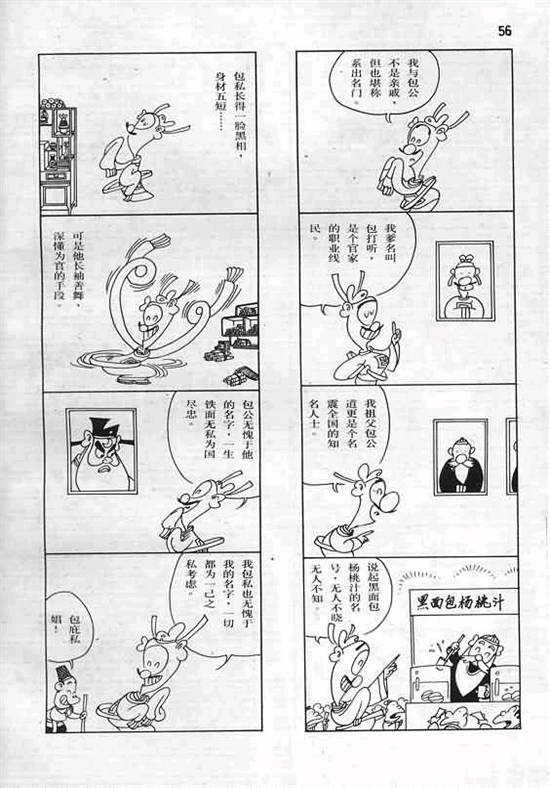 56
我与包公
不是亲戚
但也堪称
系出名门。
我爹名叫
包打听，
是个官家
的职业线
民。
我祖父包公
道更是个名
震全国的知
名人士。
说起黑面包
杨桃汁的名
号，无人不晓
无人不知。
黑面包杨桃汁
包私长得一脸黑相，
身材五短……
可是他长袖善舞，
深懂为官的手段。
包公无愧于他
的名字，一生
铁面无私为国
尽忠。
我包私也无愧于
我的名字，一切
都为一己之
私考虑。
包庇私
娼！